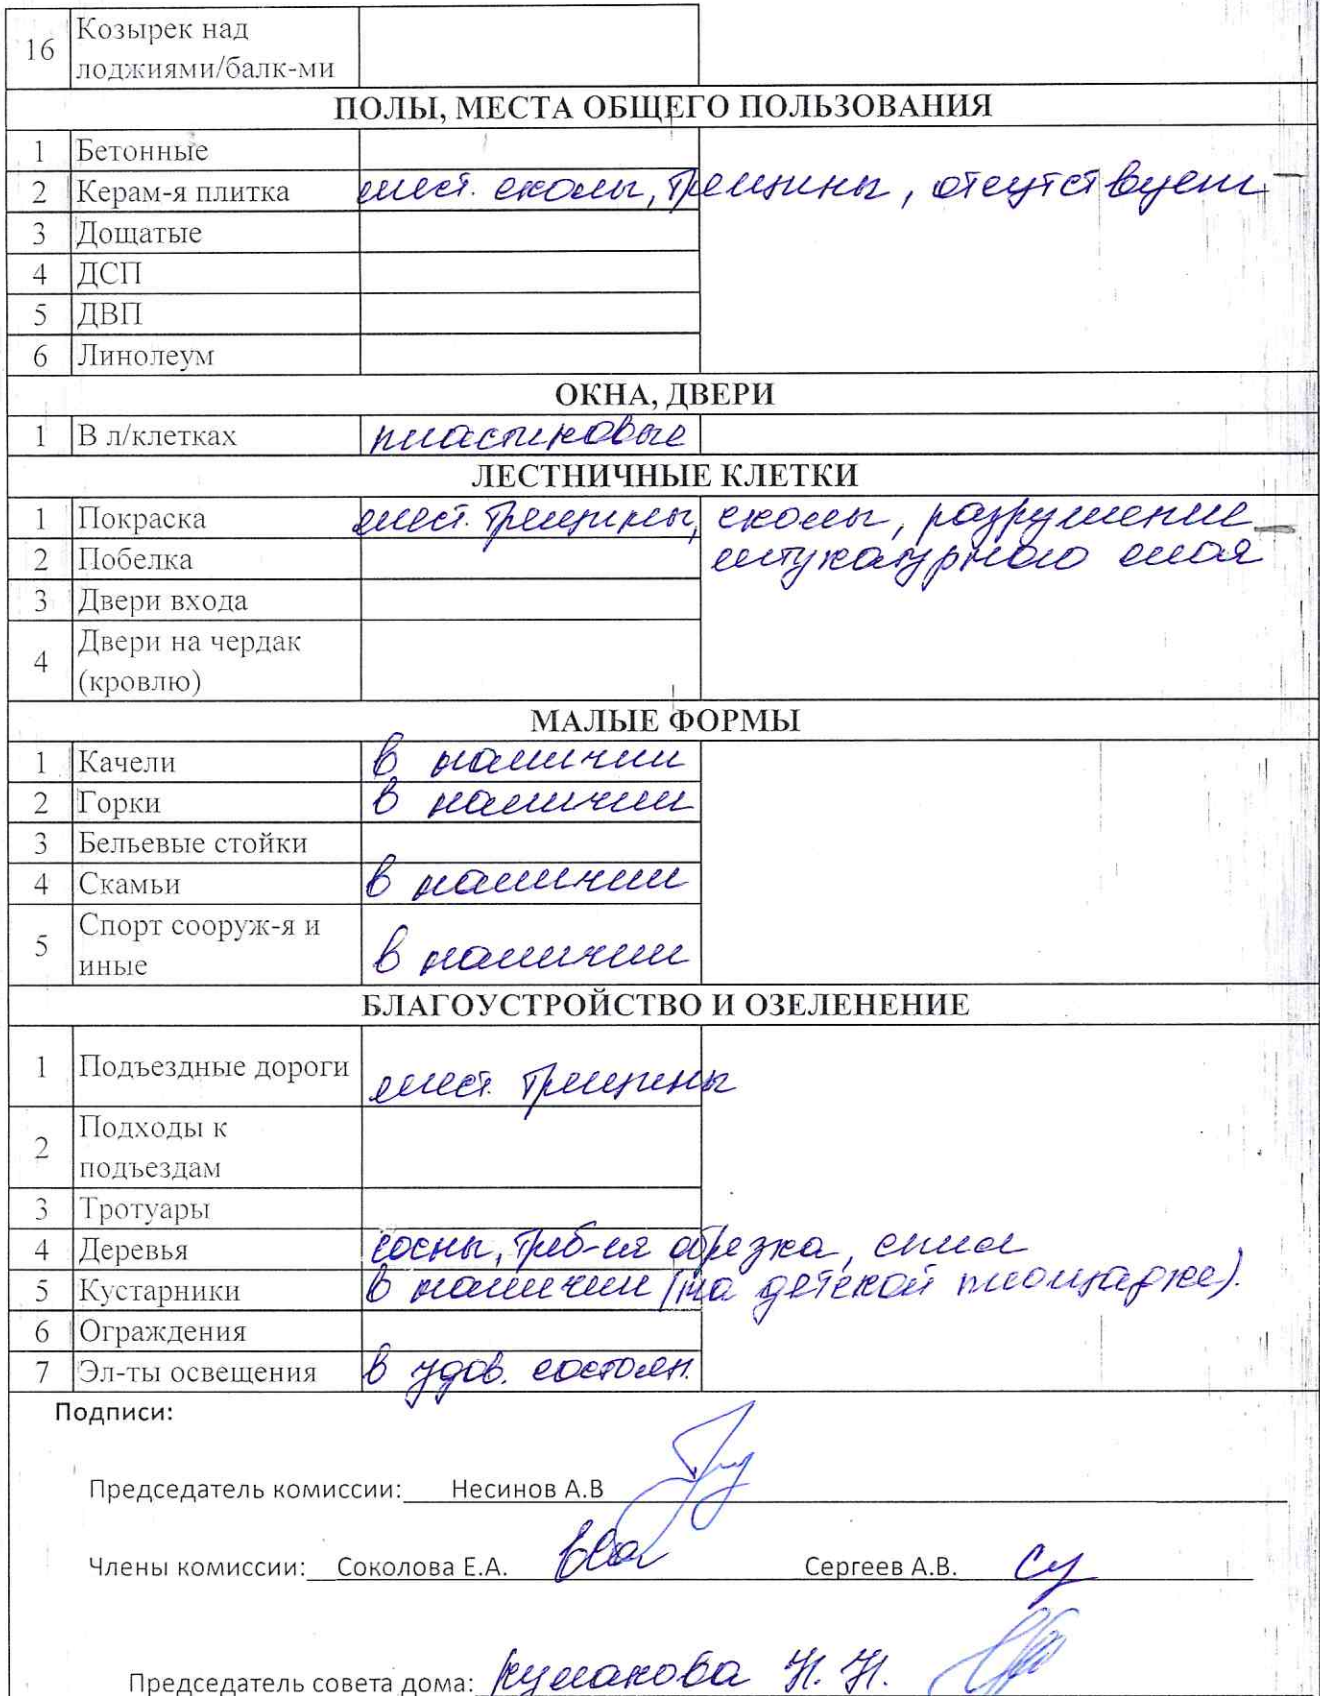 16 Козырек над
лоджиями/балк-ми
ПОЛЫ, МЕСТА ОБЩЕГО ПОЛЬЗОВАНИЯ
1 Бетонные
2 Керам-я плитка мест. сколы, трещины, отсутствует
3 Дощатые
4 ДСП
5 ДВП
6 Линолеум
ОКНА, ДВЕРИ
1 В л/клетках пластиковые
ЛЕСТНИЧНЫЕ КЛЕТКИ
1 Покраска мест. трещины, сколы, разрушение
2 Побелка штукатурного слоя
3 Двери входа
4 Двери на чердак
(кровлю)
МАЛЫЕ ФОРМЫ
1 Качели в наличии
2 Горки в наличии
3 Бельевые стойки
4 Скамьи в наличии
5 Спорт сооруж-я и
иные в наличии
БЛАГОУСТРОЙСТВО И ОЗЕЛЕНЕНИЕ
1 Подъездные дороги мест. трещины
2 Подходы к
подъездам
3 Тротуары
4 Деревья сосны, треб-ся обрезка,
5 Кустарники в наличии (на детской площадке).
6 Ограждения
7 Эл-ты освещения в удов. состоян.
Подписи:
Председатель комиссии: Несинов А.В
Члены комиссии: Соколова Е.А. Сергеев А.В.
Председатель совета дома: Н. Н.